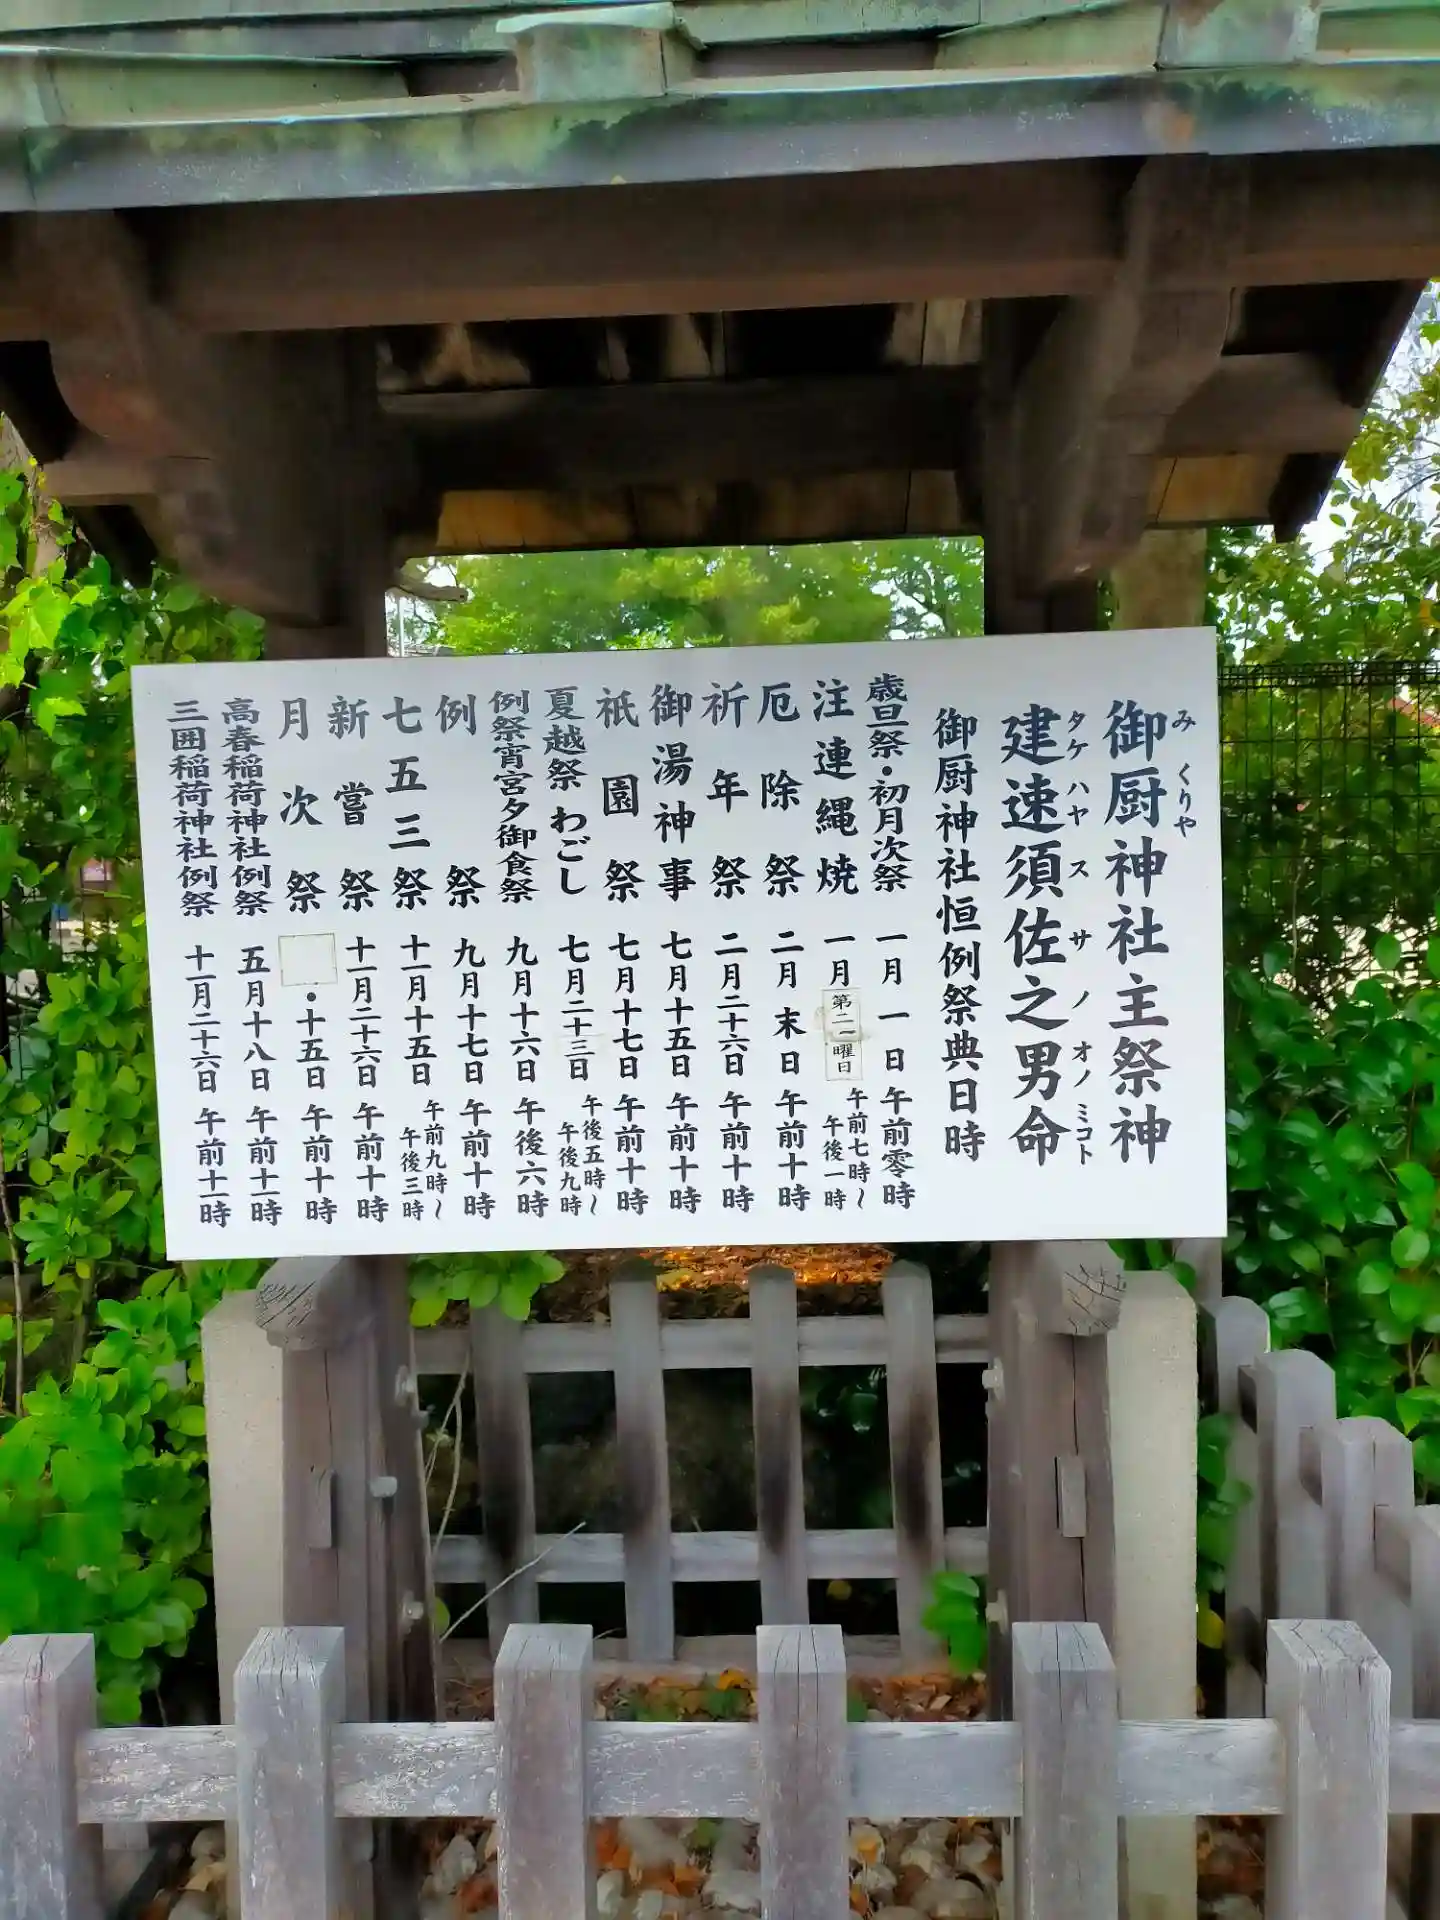 御厨神社主祭神
みくりや
建速須佐之男命
タケハヤスサノオノミコト
御厨神社恒例祭典日時
歳旦祭・初月次祭 一月一日 午前零時
注連縄焼 一月第二 曜日 午前七時〜午後一時
厄除祭 二月末日 午前十時
祈年祭 二月二十六日 午前十時
御湯神事 七月十五日 午前十時
祇園祭 七月十七日 午前十時
夏越祭 わごし 七月二十三日 午後五時〜午後九時
例祭宵宮夕御食祭 九月十六日 午後六時
例祭 九月十七日 午前十時
七五三祭 十一月十五日 午前九時〜午後三時
新嘗祭 十一月二十六日 午前十時
月次祭 ・十五日 午前十時
高春稲荷神社例祭 五月十八日 午前十一時
三囲稲荷神社例祭 十一月二十六日 午前十一時